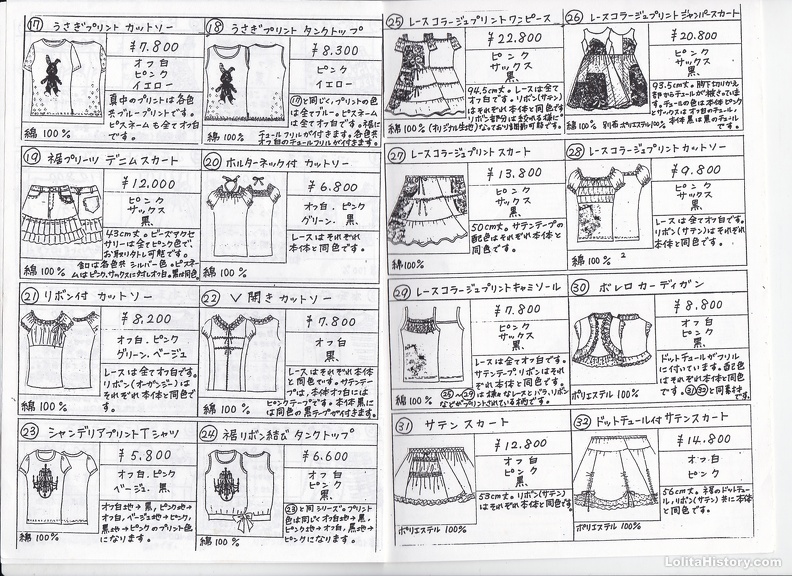 ⑰ うさぎプリント カットソー
¥7.800
オフ白
ピンク
イエロー
真中のプリントは各色
共ブループリントです。
ピスネームも全てオフ白
です。
綿 100%
⑱ うさぎプリント タンクトップ
¥8.300
ピンク
イエロー
⑰と同じく、プリントの色
は全てブルー。ピスネーム
は全てオフ白です。裾に
チュールフリルが付きます。各色共
オフ白のチュールフリルです。
綿 100%
⑲ 裾プリーツ デニムスカート
¥12.000
ピンク
サックス
黒、
43cm丈。ビーズアクセ
サリーは全てピンク色で、
お取りタトレ可能です。
金口は各色共 シルバー色。ピスネー
ムはピンク、サックスにオフ白、黒は同色。
綿 100%
⑳ ホルターネック付 カットソー
¥6.800
オフ白. ピンク
グリーン. 黒、
レースはそれぞれ
本体と同色です。
綿 100%
㉑ リボン付 カットソー
¥8,200
オフ白. ピンク
グリーン. ベージュ
レースは全てオフ白です。
リボン(オーガンジー)は
それぞれ本体と同色で
す。
綿 100%
㉒ V開き カットソー
¥7.800
オフ白
ピンク
黒、
レースはそれぞれ本体
と同色です。サテンテー
プは、本体オフ白には
ピンクテープです。本体黒に
は同色の黒テープが付きます。
綿 100%
㉓ シャンデリアプリントTシャツ
¥5.800
オフ白. ピンク
ベージュ. 黒、
オフ白地→黒, ピンク地→
オフ白, ベージュ地→ピンク,
黒地→ピンクのプリント色
になります。
綿 100%
㉔ 裾リボン結び タンクトップ
¥6.600
オフ白
ピンク
黒、
㉓と同シリーズ。プリント
色は同じくオフ白地→黒,
ピンク地→オフ白, 黒地→
ピンクになります。
綿 100%
㉕ レースコラージュプリントワンピース
¥22.800
ピンク
サックス
黒、
94.5cm丈。レースは全て
オフ白です。リボン(サテン)
はそれぞれ本体と同色です。
リボン部分は絞れる様に
なっており調節可能です。
綿 100% (オリジナル生地)
㉖ レースコラージュプリントジャンパースカート
¥20.800
ピンク
サックス
黒、
93.5cm丈。胸下切りかえ
部からチュールが被さっていま
す。チュールの色は本体ピンク
とサックスはオフ白のチュール、
本体黒は黒のチュール
です。
綿 100% 別布 ポリエステル100%
㉗ レースコラージュプリント スカート
¥13.800
ピンク
サックス
黒、
50cm丈。サテンテープの
配色はそれぞれ本体と
同色です。
綿 100%
㉘ レースコラージュプリント カットソー
¥9.800
ピンク
サックス
黒、
レースは全てオフ白です。
リボン(サテン)はそれぞれ
本体と同色です。
綿 100%
㉙ レースコラージュプリントキャミソール
¥7.800
ピンク
サックス
黒、
レースは全てオフ白です。
サテンテープ、リボンはそれぞ
れ本体と同色です。
㉕~㉙は様々なレースとバラ、リボン
などがプリントされている柄です。
綿 100%
㉚ ボレロ カーディガン
¥8.800
オフ白
ピンク
黒、
ドットチュールがフリル
に付いています。配色は
それぞれ本体と同色
です。㉛㉜と同素材
です。
ポリエステル 100%
㉛ サテン スカート
¥12.800
オフ白
ピンク
黒、
53cm丈。リボン(サテン)
はそれぞれ本体と同色です。
ポリエステル 100%
㉜ ドットチュール付サテンスカート
¥14.800
オフ白
ピンク
黒、
56cm丈。裾のドットチュー
ル、リボン(サテン)共に本体
と同色です。
ポリエステル 100%
LolitaHistory.com